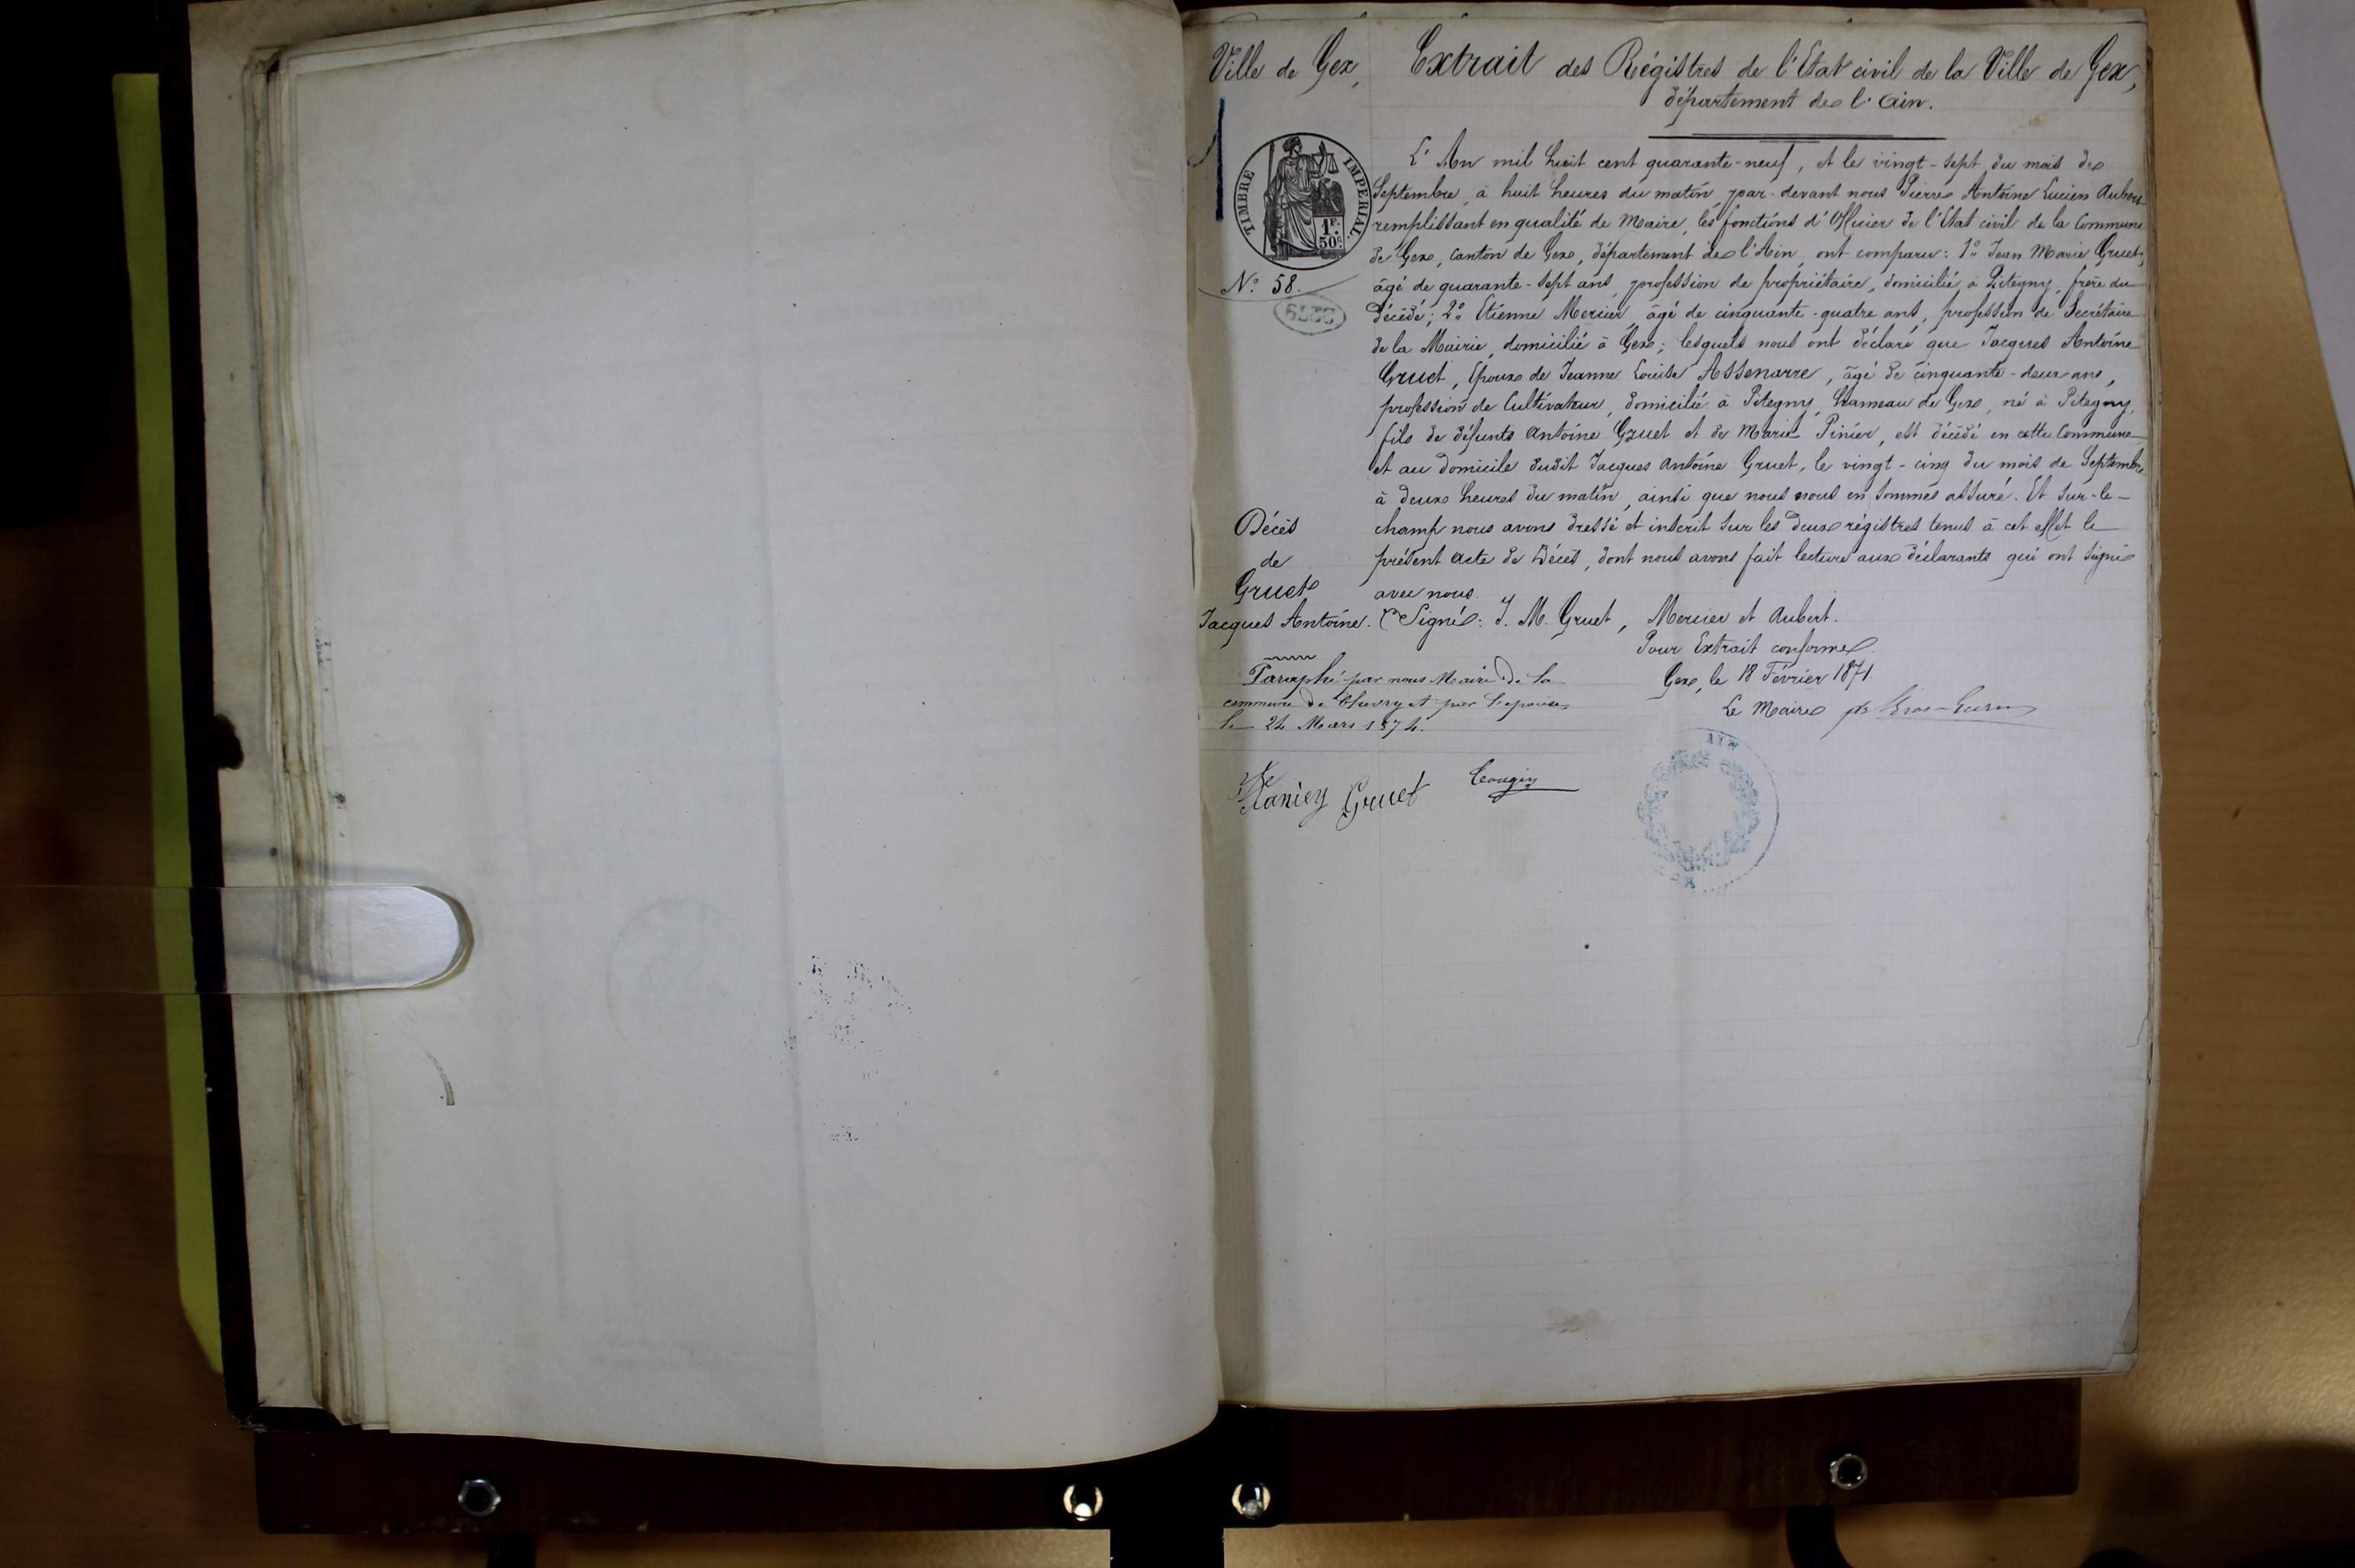 Ville de Gex,
Extrait des Régistres de l'Etat civil de la Ville de Gex,
département de l'Ain.
TIMBRE IMPERIAL
1F. 50c
N° 58.
L'An mil huit cent quarante-neuf, et le vingt-sept du mois de
Septembre, à huit heures du matin, par-devant nous Pierre Antoine Lucien Aubert
remplissant en qualité de Maire, les fonctions d'Officier de l'Etat civil de la Commune
de Gex, canton de Gex, département de l'Ain, ont comparu: 1° Jean Marie Gruet,
âgé de quarante-sept ans, profession de propriétaire, domicilié à Pitegny, frère du
décédé; 2° Etienne Mercier, âgé de cinquante-quatre ans, profession de Secrétaire
de la Mairie, domicilié à Gex; lesquels nous ont déclaré que Jacques Antoine
Gruet, Epoux de Jeanne Louise Assenarre, âgé de cinquante-deux ans,
profession de Cultivateur, domicilié à Pitegny, hameau de Gex, né à Pitegny,
fils de défunts Antoine Gruet et de Marie Pinier, est décédé en cette Commune
et au domicile dudit Jacques Antoine Gruet, le vingt-cinq du mois de Septembre
à deux heures du matin, ainsi que nous nous en sommes assuré. Et sur-le-
champ nous avons dressé et inscrit sur les deux régistres tenus à cet effet le
présent acte de Décès, dont nous avons fait lecture aux déclarants qui ont signé
avec nous.
Décès
de
Gruet
Jacques Antoine.
Signé: J. M. Gruet, Mercier et Aubert.
Pour Extrait conforme.
Gex, le 18 Février 1871.
Le Maire
Paraphé par nous Maire de la
commune de Chevry et par
le 24 Mars 1874.
Gruet
AIN